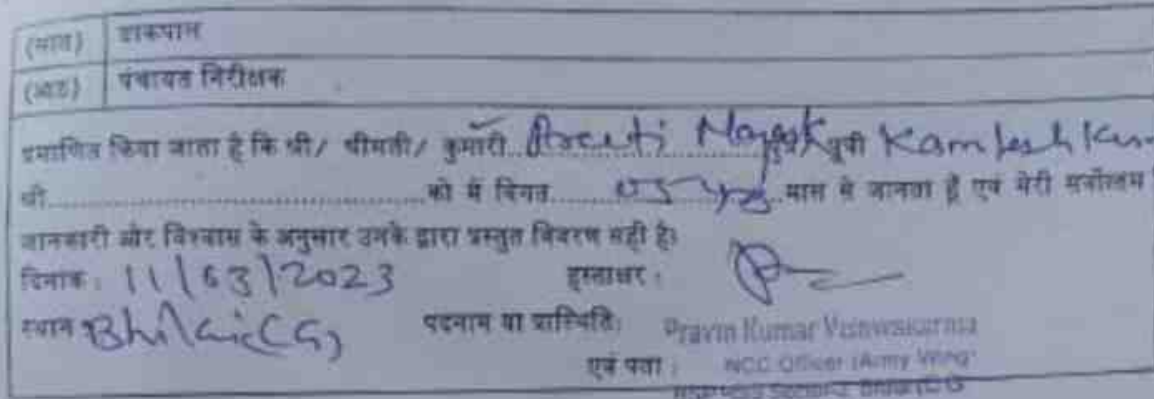 (सात) डाकपाल
(आठ) पंचायत निरीक्षक
प्रमाणित किया जाता है कि श्री/ श्रीमती/ कुमारी.. Areeti ..पुत्री Kamlesh Kum
श्री..............................को मैं विगत.......... 05 yrs ..मास से जानता हूँ एवं मेरी सर्वोत्तम
जानकारी और विश्वास के अनुसार उनके द्वारा प्रस्तुत विवरण सही है।
दिनांक : 11/03/2023 हस्ताक्षर :
स्थान : Bhilai (CG) पदनाम या प्रास्थिति: Pravin Kumar Vishwakarma
एवं पता : NCC Officer (Army Wing)